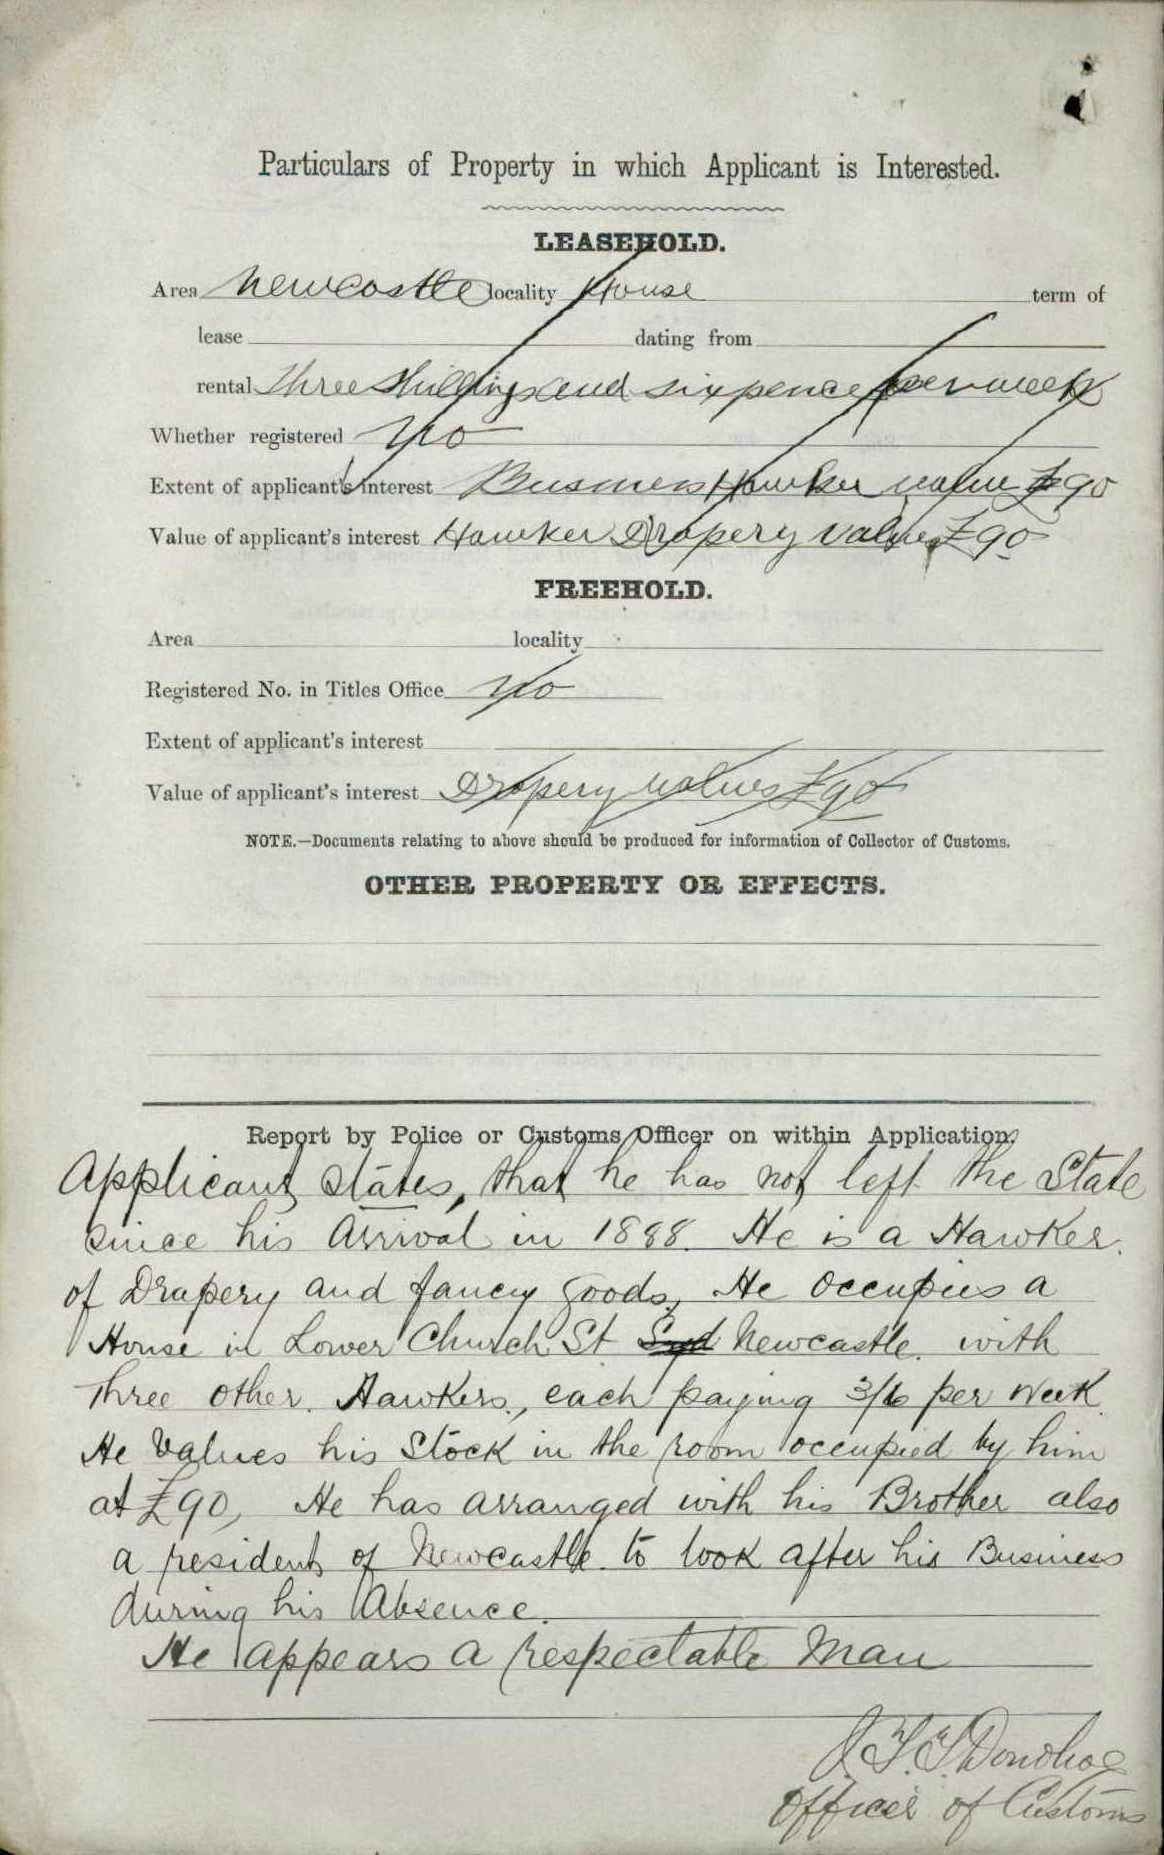 Particulars of Property in which Applicant is Interested.
LEASEHOLD.
Area Newcastle locality House term of
lease dating from
rental Three Shillings and sixpence per week
Whether registered No
Extent of applicant's interest Business Hawker value £90
Value of applicant's interest Hawker Drapery values £90
FREEHOLD.
Area locality
Registered No. in Titles Office No
Extent of applicant's interest
Value of applicant's interest Drapery values £90
NOTE.—Documents relating to above should be produced for information of Collector of Customs.
OTHER PROPERTY OR EFFECTS.
Report by Police or Customs Officer on within Application.
Applicant states, that he has not left the State
since his Arrival in 1888. He is a Hawker.
of Drapery and fancy goods, He occupies a
House in Lower Church St Syd Newcastle. with
three other. Hawkers, each paying 3/6 per week.
He Values his Stock in the room occupied by him
at £90, He has arranged with his Brother also
a resident of Newcastle. to look after his Business
during his Absence.
He appears a respectable Man
Donohoe
Officer of Customs